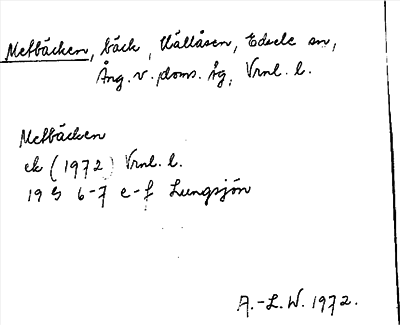 Metbäcken, bäck, Källåsen, Edsele sn,
Ång. v. doms. äg, Vrnl. l.
Metbäcken
ek (1972) Vrnl. l.
19 G 6-7 e-f Lungsjön
A.-L.W. 1972.